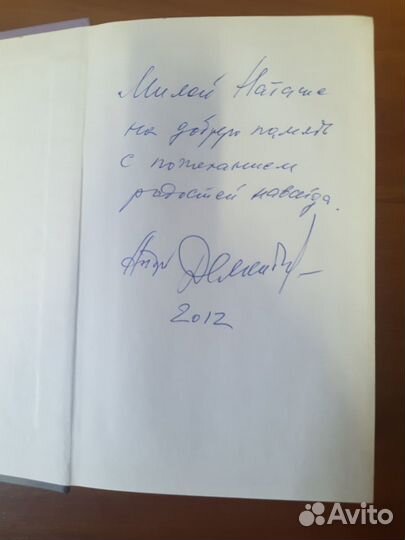 Милой Наташе
на добрую память
с пожеланием
радостей навсегда.
Андр Дементьев
2012
Avito